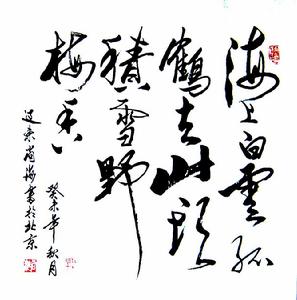 海上白雲孤
鶴去山頭
積雪野
梅香
癸未年秋月
辽東 海書於北京